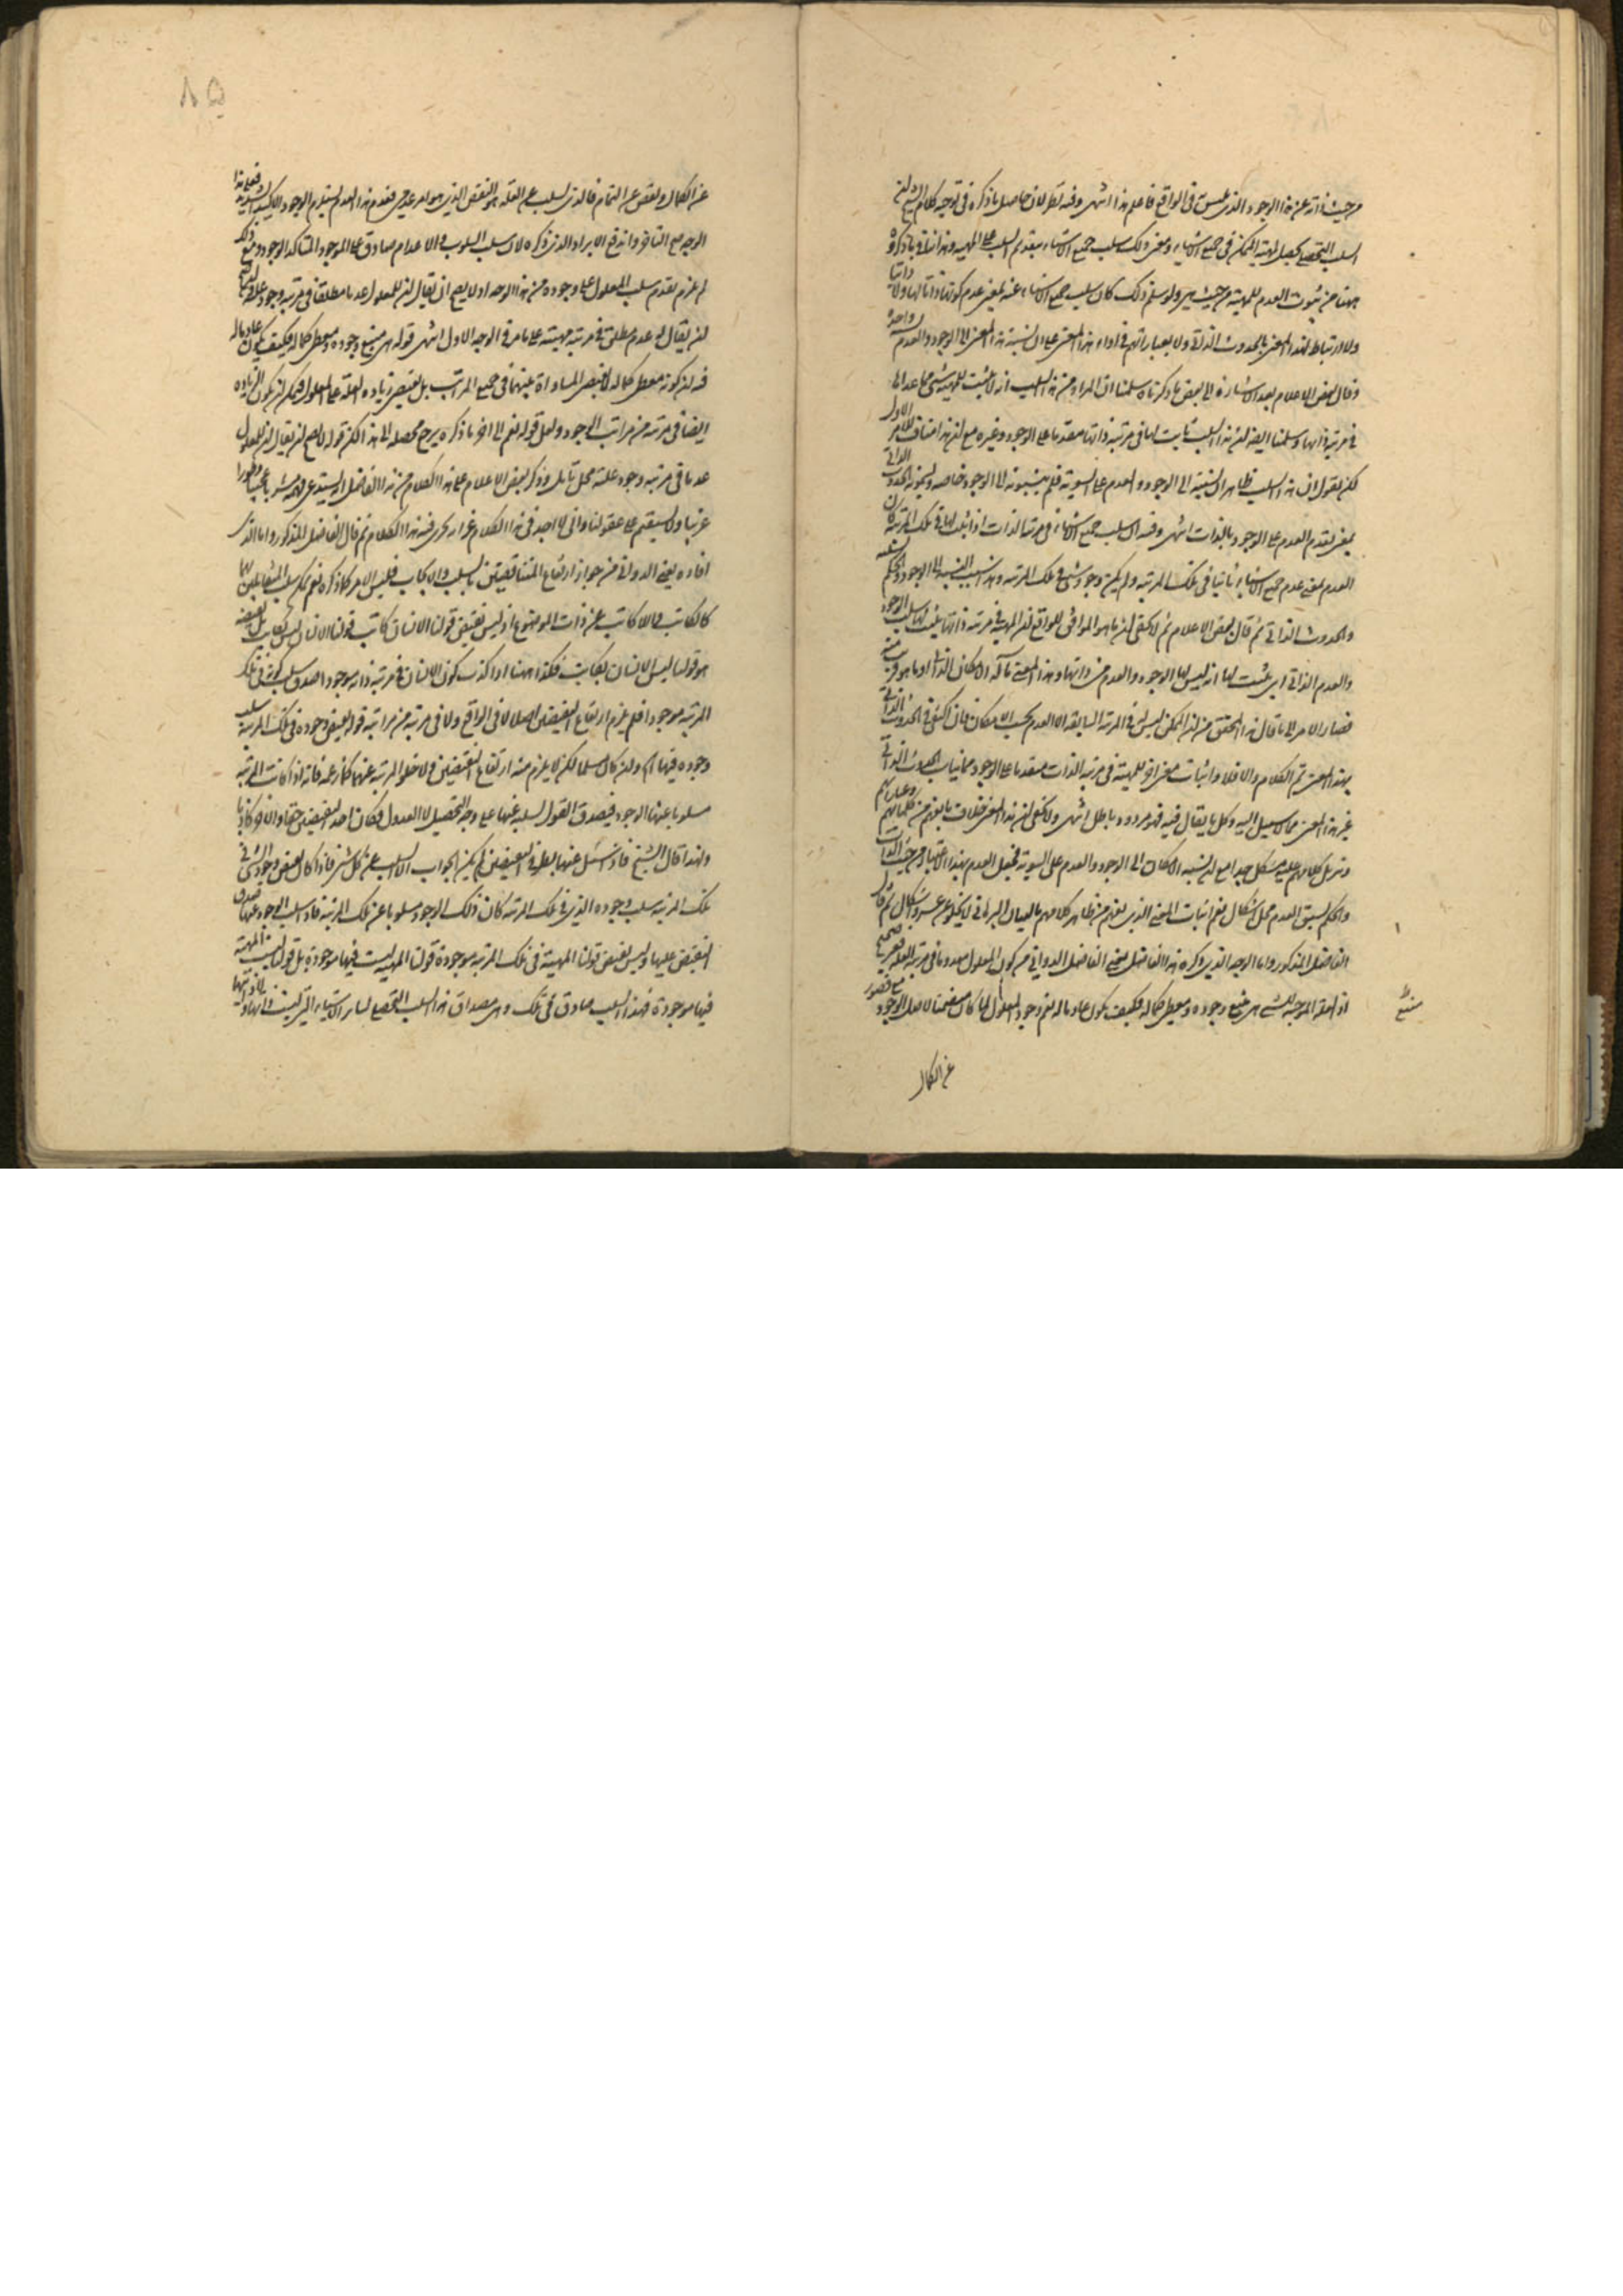 من حيث ذاته عن هذا الوجود الذي ليس في الواقع فاعلم هذا انتهى وفيه نظر لان حاصل ما ذكره في توجيه كلام الشيخ ان
السلب التحصيلي لمهية الممكن في جميع الاشياء ومعنى ذلك سلب جميع الاشياء بتقديم السلب على المهية وهذا
ههنا من ثبوت العدم للمهية من حيث هي ولو سلم ذلك كان سلب جميع الاشياء عنه بمعنى عدم كونها ذاتا لها ولا ذاتيا
ولا ارتباط لهذا المعنى بالحدوث الذاتي ولا بعباراتهم في اداء هذا المعنى على ان نسبة هذا المعنى الى الوجود والعدم نسبة واحدة
وقال بعض الاعلام بعد الاشارة الى بعض ما ذكرناه سلمنا ان المراد من هذا السلب انه لا يثبت للمهية شيء مما عداها
في مرتبة ذاتها وسلمنا ايضا ان هذا السلب ثابت لها في مرتبة ذاتها مقدما على الوجود وغيره مع ان هذا مناف للامر الاول
لكن نقول ان هذا السلب ظاهر ان نسبته الى الوجود والعدم على السوية فلم ينسبونه الى الوجود خاصة ويسمونه الحدوث الذاتي
بمعنى تقدم العدم على الوجود بالذات انتهى وفيه ان سلب جميع الاشياء في مرتبة الذات اذا ثبت لها في تلك المرتبة كان
العدم بمعنى عدم جميع الاشياء ثابتا في تلك المرتبة ولم يكن وجود شيء في تلك المرتبة
والحدوث الذاتي ثم قال بعض الاعلام ثم لا يخفى ان ما هو الموافق للواقع ان المهية في مرتبة ذاتها يثبت لها سلب الوجود
والعدم الذاتي اي يثبت لها انه ليس لها الوجود والعدم من ذاتها وهذا المعنى مآله الامكان الذاتي او ما هو قريب منه
فصار الامر الى ما قال هذا المحقق من ان الممكن ليس له في المرتبة السابقة الا العدم بحسب الامكان فان اكتفى في الحدوث الذاتي
بهذا المعنى تم الكلام والا فلا واثبات معنى اخر للمهية في مرتبة الذات متقدما على الوجود مما يناسب الحدوث الذاتي
غير هذا المعنى مما لا سبيل اليه وكل ما يقال فيه فهو مردود باطل انتهى ولا يخفى ان هذا المعنى خلاف ما يفهم من كلماتهم وعباراتهم
وتنزيل كلامهم عليه مشكل جدا مع ان نسبة الامكان الى الوجود والعدم على السوية فتخيل العدم بهذا الاعتبار من حيث الذات
والحكم بسبق العدم محل اشكال نعم اثبات المعنى الذي يفهم من ظاهر كلامهم بالبيان البرهاني لا يخلو عن عسر واشكال ثم قال
الفاضل المذكور واما الوجه الذي ذكره هذا الفاضل يعني الفاضل الدواني من كون المعلول معدوما في مرتبة العلة فغير صحيح
اذ العلة الموجبة للشيء هي منبع وجوده ومعطي كماله فكيف يكون عادما له نعم وجود المعلول لما كان متضمنا لاصل الوجود مع قصور
منبع
عن الكمال
٨٥
عن الكمال ونقص عن التمام فالذي يسلب عن العلة هو النقص الذي هو امر عدمي فعدم هذا العدم يستلزم الوجود الاكيد الشديد فعلى هذا
الوجه مع التنافر واندفع الايراد الذي ذكره لان سلب السلوب والاعدام صادق على الموجود المتأكد الوجود ومع ذلك
لم يلزم تقدم سلب المعلول على وجوده من هذا الوجه اذ لا يصح ان يقال ان للمعلول عدما مطلقا في مرتبة وجود علته كما يصح
ان يقال له عدم مطلق في مرتبة مهيته على ما مر في الوجه الاول انتهى قوله هي منبع وجوده ومعطي كماله فكيف يكون عادما له
فيه ان كونه معطي كماله لا يقتضي المساواة بينهما في جميع المراتب بل يقتضي زيادة العلة على المعلول فيمكن ان يكون الزيادة
ايضا في مرتبة من مراتب الوجود ولعل قوله نعم الى اخر ما ذكره يرجع محصله الى هذا لكن قوله لا يصح ان يقال ان للمعلول
عدما في مرتبة وجود علته محل تأمل وذكر بعض الاعلام على هذا الكلام من هذا الفاضل انه يستدعي
غريبا ولا يستقيم على عقولنا واني لا اجد في هذا الكلام فيه هذا الكلام ثم قال الفاضل المذكور واما الذي
افاده يعني الدواني من جواز ارتفاع المتناقضين بالسلب والايجاب فليس الامر كما ذكره نعم يمكن سلب المتقابلين
كالكاتب واللاكاتب عن ذات الموضوع اذ ليس نقيض قولنا الانسان كاتب قولنا الانسان ليس بكاتب بل نقيضه
هو قولنا ليس الانسان بكاتب فكذا ههنا اذا كذب كون الانسان في مرتبة ذاته موجودا صدق سلب كونه في تلك
المرتبة موجودا فلم يلزم ارتفاع النقيضين اصلا لا في الواقع ولا في مرتبة من مراتبه قوله نقيض وجوده في تلك المرتبة سلب
وجوده فيها الخ ولئن كان مسلما لكن لا يلزم منه ارتفاع النقيضين ولا خلو المرتبة عنهما كما زعمه فانه اذا كانت المرتبة
مسلوبا عنها الوجود فيصدق القول لسلبه عنها على وجه التحصيل لا العدول فكان احد النقيضين حقا والاخر كاذبا
ولهذا قال الشيخ فان سئل عنها بطرفي النقيضين لم يكن الجواب الا السلب عن كل شيء فاذا كان نقيض وجود الشيء في
تلك المرتبة سلب وجوده الذي في تلك المرتبة كان ذلك الوجود مسلوبا عن تلك المرتبة فاذا سلب الوجود عنها صدق
النقيض عليها وليس نقيض قولنا المهية في تلك المرتبة موجودة قولنا المهية ليست فيها موجودة بل قولنا ليست المهية
فيها موجودة فهذا السلب صادق في تلك وهي مصداق هذا السلب التحصيلي لسائر الاشياء التي ليست ذاتها